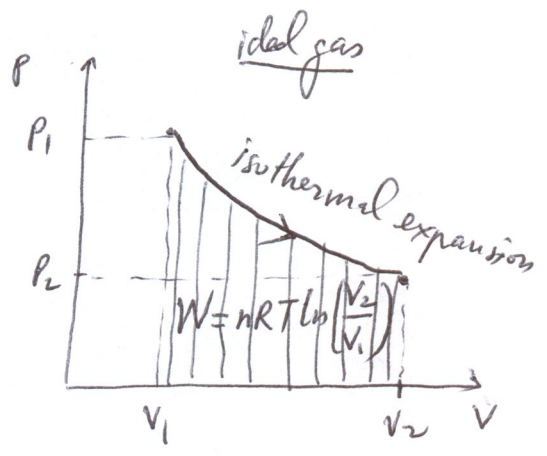 ideal gas
P
P₁
isothermal expansion
P₂
W = nRT ln (V₂/V₁)
V₁
V₂
V